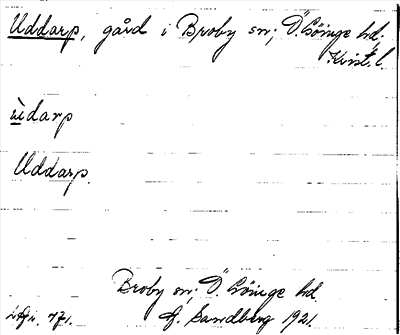 Uddarp, gård i Broby sn; Ö. Göinge hd.
Krist. l.
ùdarp
Uddarp.
Broby sn; Ö. Göinge hd.
471. f. Sandberg 1921.